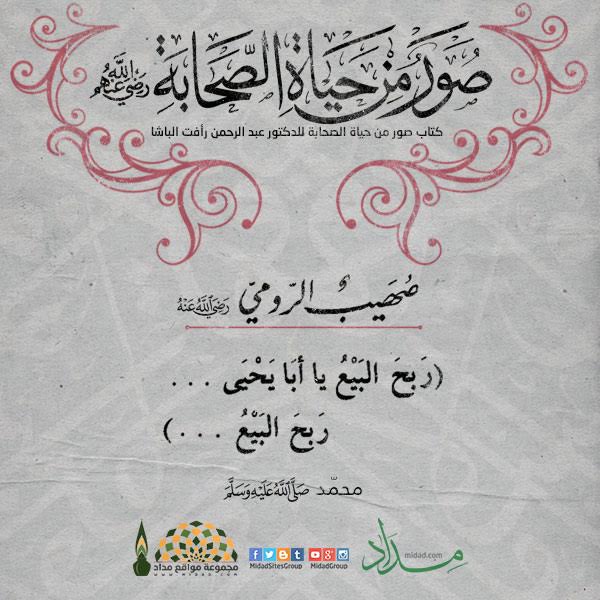 صُوَرٌ مِنْ حَيَاةِ الصَّحَابَةِ رَضِيَ اللَّهُ عَنْهُمْ
كتاب صور من حياة الصحابة للدكتور عبد الرحمن رأفت الباشا
صُهَيبٌ الرّوميّ رَضِيَ اللَّهُ عَنْهُ
(رَبِحَ البَيْعُ يا أبَا يَحْيَى ...
رَبِحَ البَيْعُ ...)
محمّد صَلَّى اللَّهُ عَلَيْهِ وَسَلَّمَ
مجموعة مواقع مداد
WWW.MIDAD.COM
MidadSitesGroup MidadGroup
midad.com
مداد